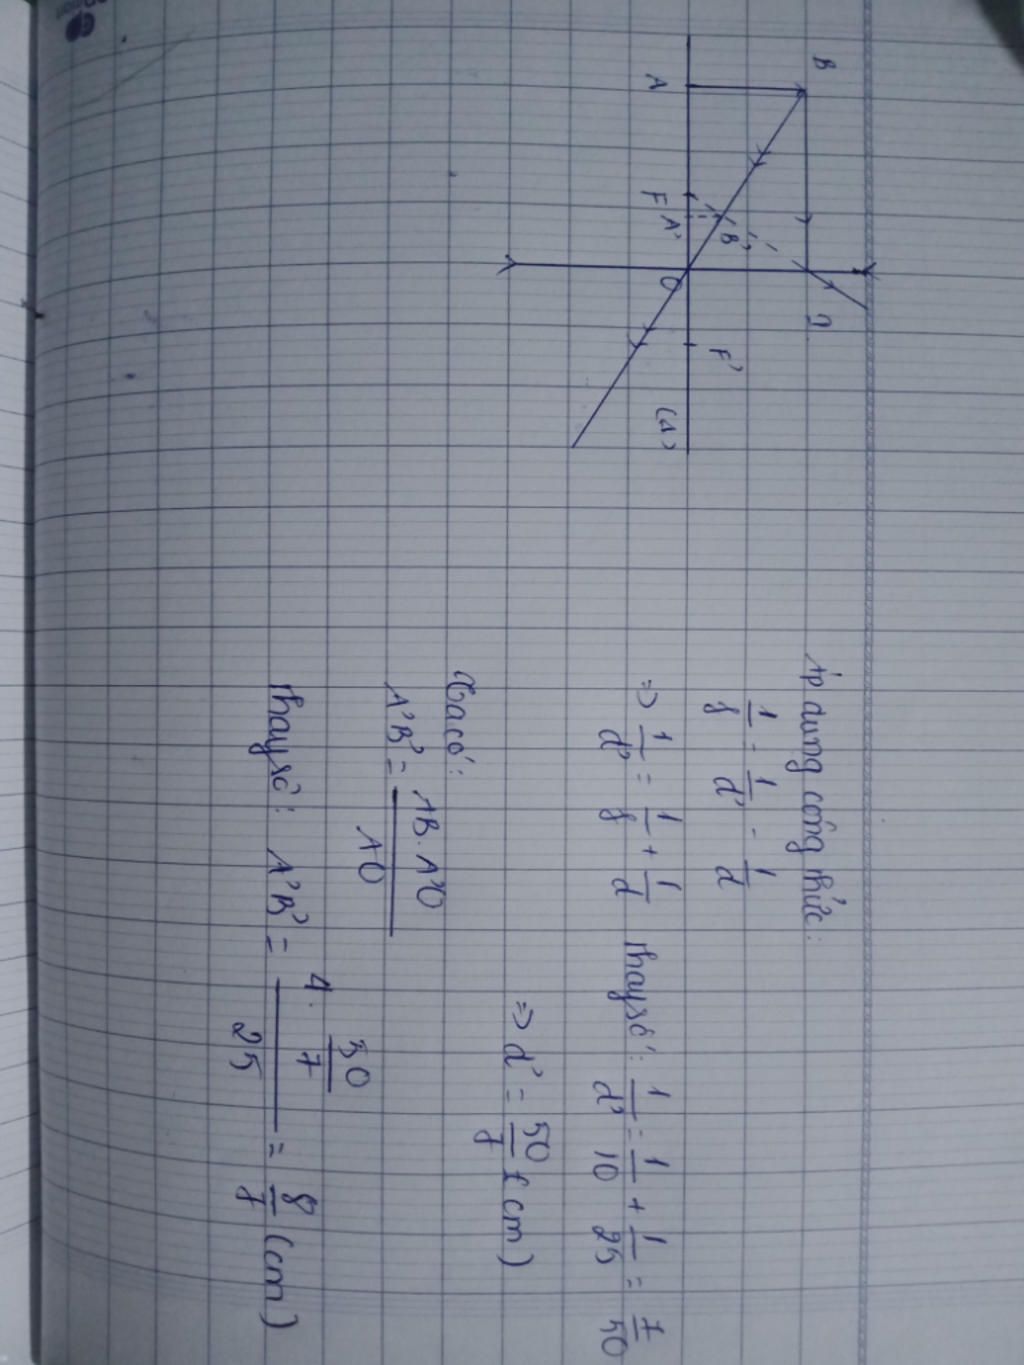 B
I
B'
F'
A
F
A'
O
(Δ)
Áp dụng công thức:
1/f = 1/d' - 1/d
=> 1/d' = 1/f + 1/d thay số: 1/d' = 1/10 + 1/25 = 7/50
=> d' = 50/7 (cm)
Ta có:
A'B' = AB.A'O/AO
thay số: A'B' = 4.50/7/25 = 8/7 (cm)